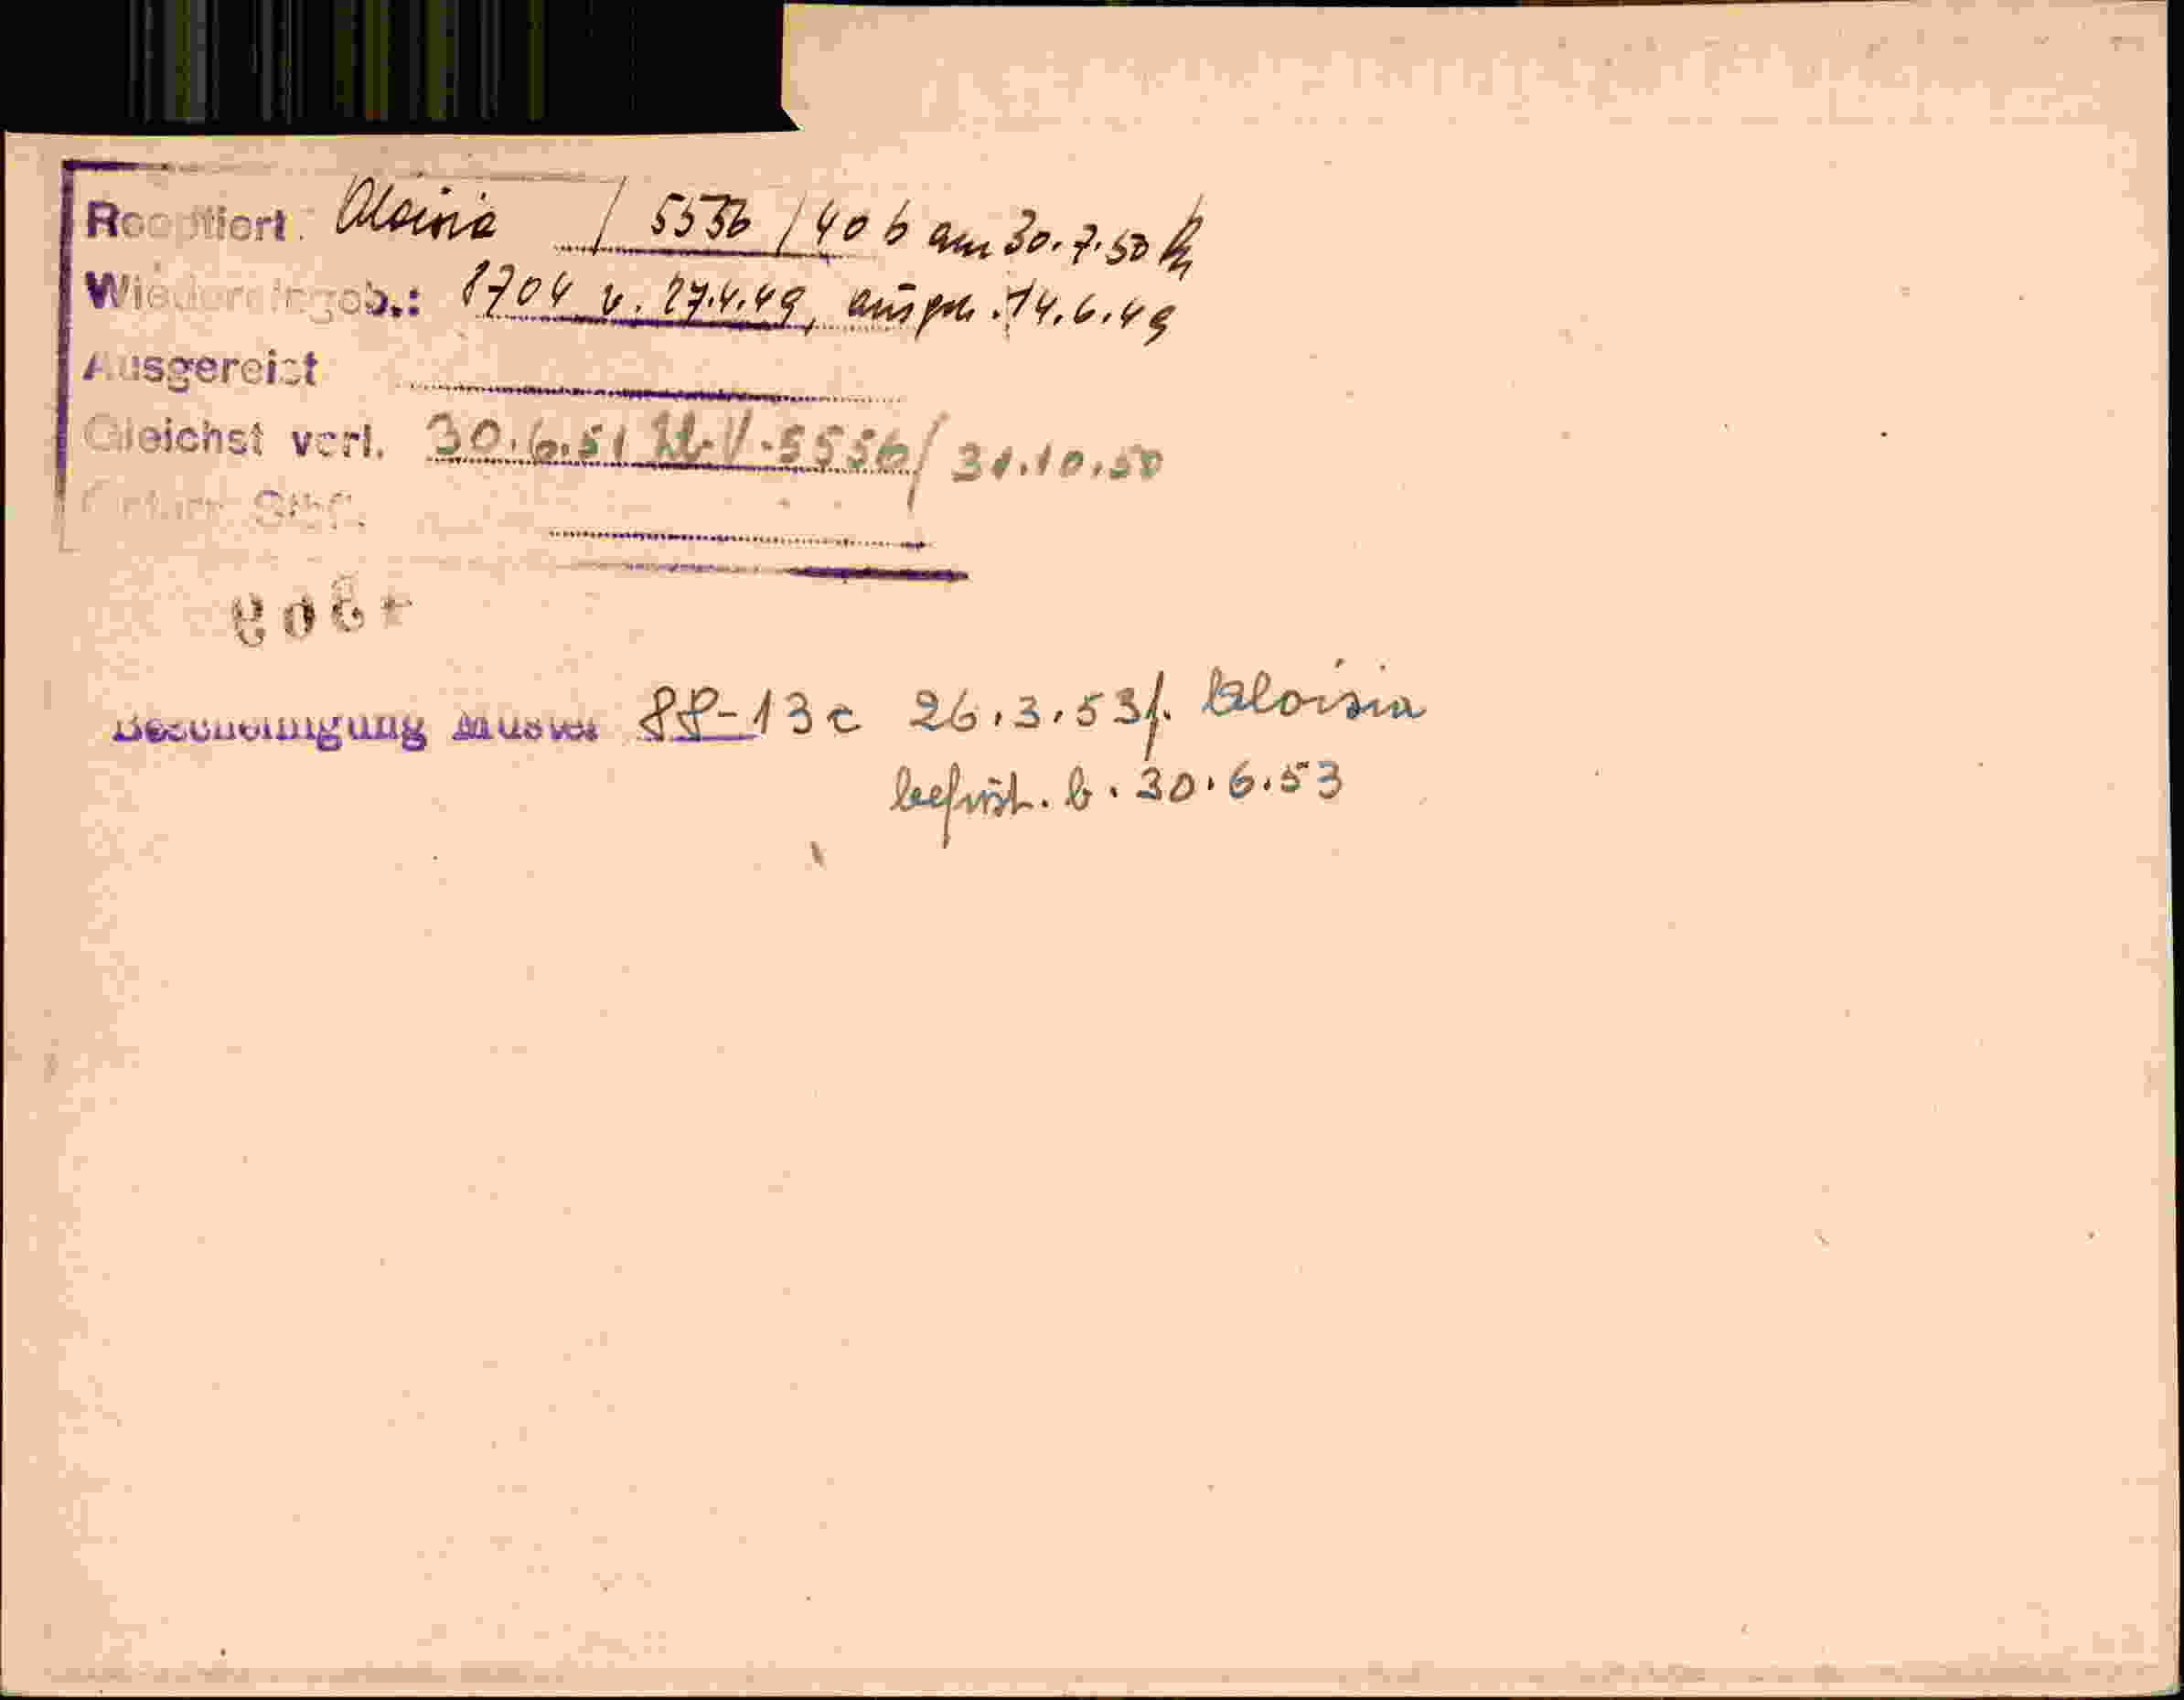 Reoptiert: Aloisia / 5556 / 40 b am 30.7.50
Wiedereingeb.: 1704 v. 27.4.49, 14.6.49
Ausgereist
Gleichst verl. 30.6.51 5556/ 31.10.50
Bescheinigung Muster 88-13c 26.3.53 f. Aloisia
befrist. b. 30.6.53